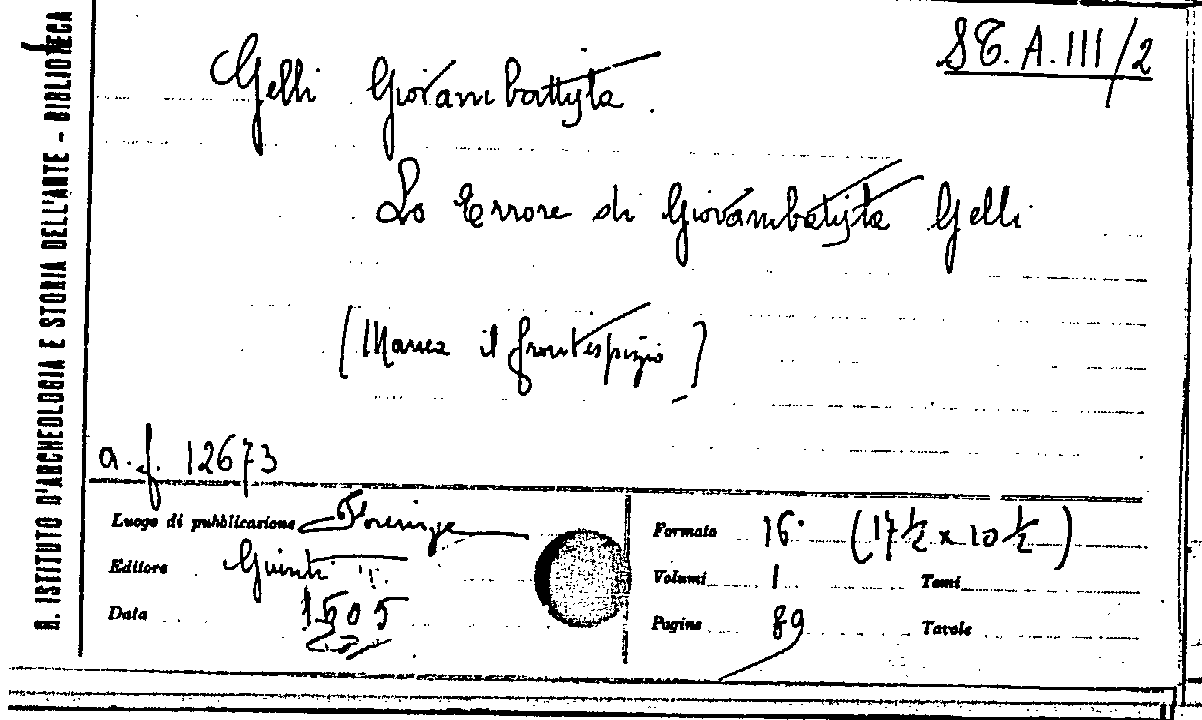 R. ISTITUTO D'ARCHEOLOGIA E STORIA DELL'ARTE - BIBLIOTECA
ST. A. III/2
Gelli Giovambattista.
Lo Errore di Giovambatista Gelli
(Manca il frontespizio)
a. f. 12673
Luogo di pubblicazione Firenze
Editore Giunti
Data 1605
Formato 16° (17 ½ x 10 ½)
Volumi 1 Tomi
Pagine 89 Tavole